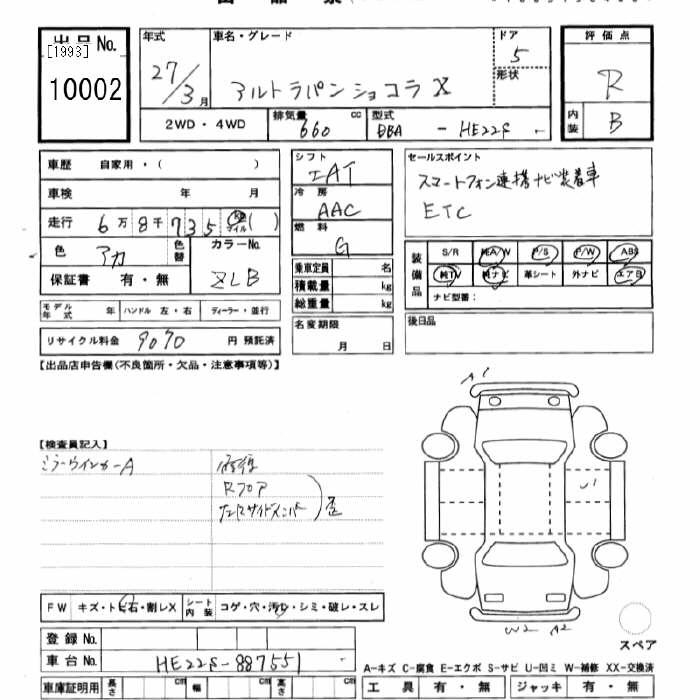 出品No.
[1993]
10002
年式
27/3月
車名・グレード
アルトラパンショコラ X
ドア
5
形状
評価点
R
内装
B
2WD・4WD
排気量
660 cc
型式
DBA - HE22S
車歴 自家用・( )
車検 年 月
走行 6万8千735 km マイル ( )
色
アカ
色替
カラーNo.
ZLB
保証書 有・無
モデル年式 年
ハンドル 左・右
ディーラー・並行
リサイクル料金 9070 円 預託済
シフト
IAT
冷房
AAC
燃料
G
乗車定員 名
積載量 kg
総重量 kg
名変期限
月 日
セールスポイント
スマートフォン連携ナビ装着車
ETC
装備品
S/R
P/S
P/W
ABS
純TV
純ナビ
革シート
外ナビ
エアB
ナビ型番:
後日品
【出品店申告欄(不良箇所・欠品・注意事項等)】
A1
【検査員記入】
ミラーウインカーA
修復
Rフロア
歪
FW キズ・トビ石・割レX
シート内装 コゲ・穴・汚レ・シミ・破レ・スレ
W2 A2
スペア
登録No.
車台No. HE22S-887551
A−キズ C−腐食 E−エクボ S−サビ U−凹ミ W−補修 XX−交換済
車庫証明用 長さ cm 幅 cm 高さ cm
工具 有・無 ジャッキ 有・無